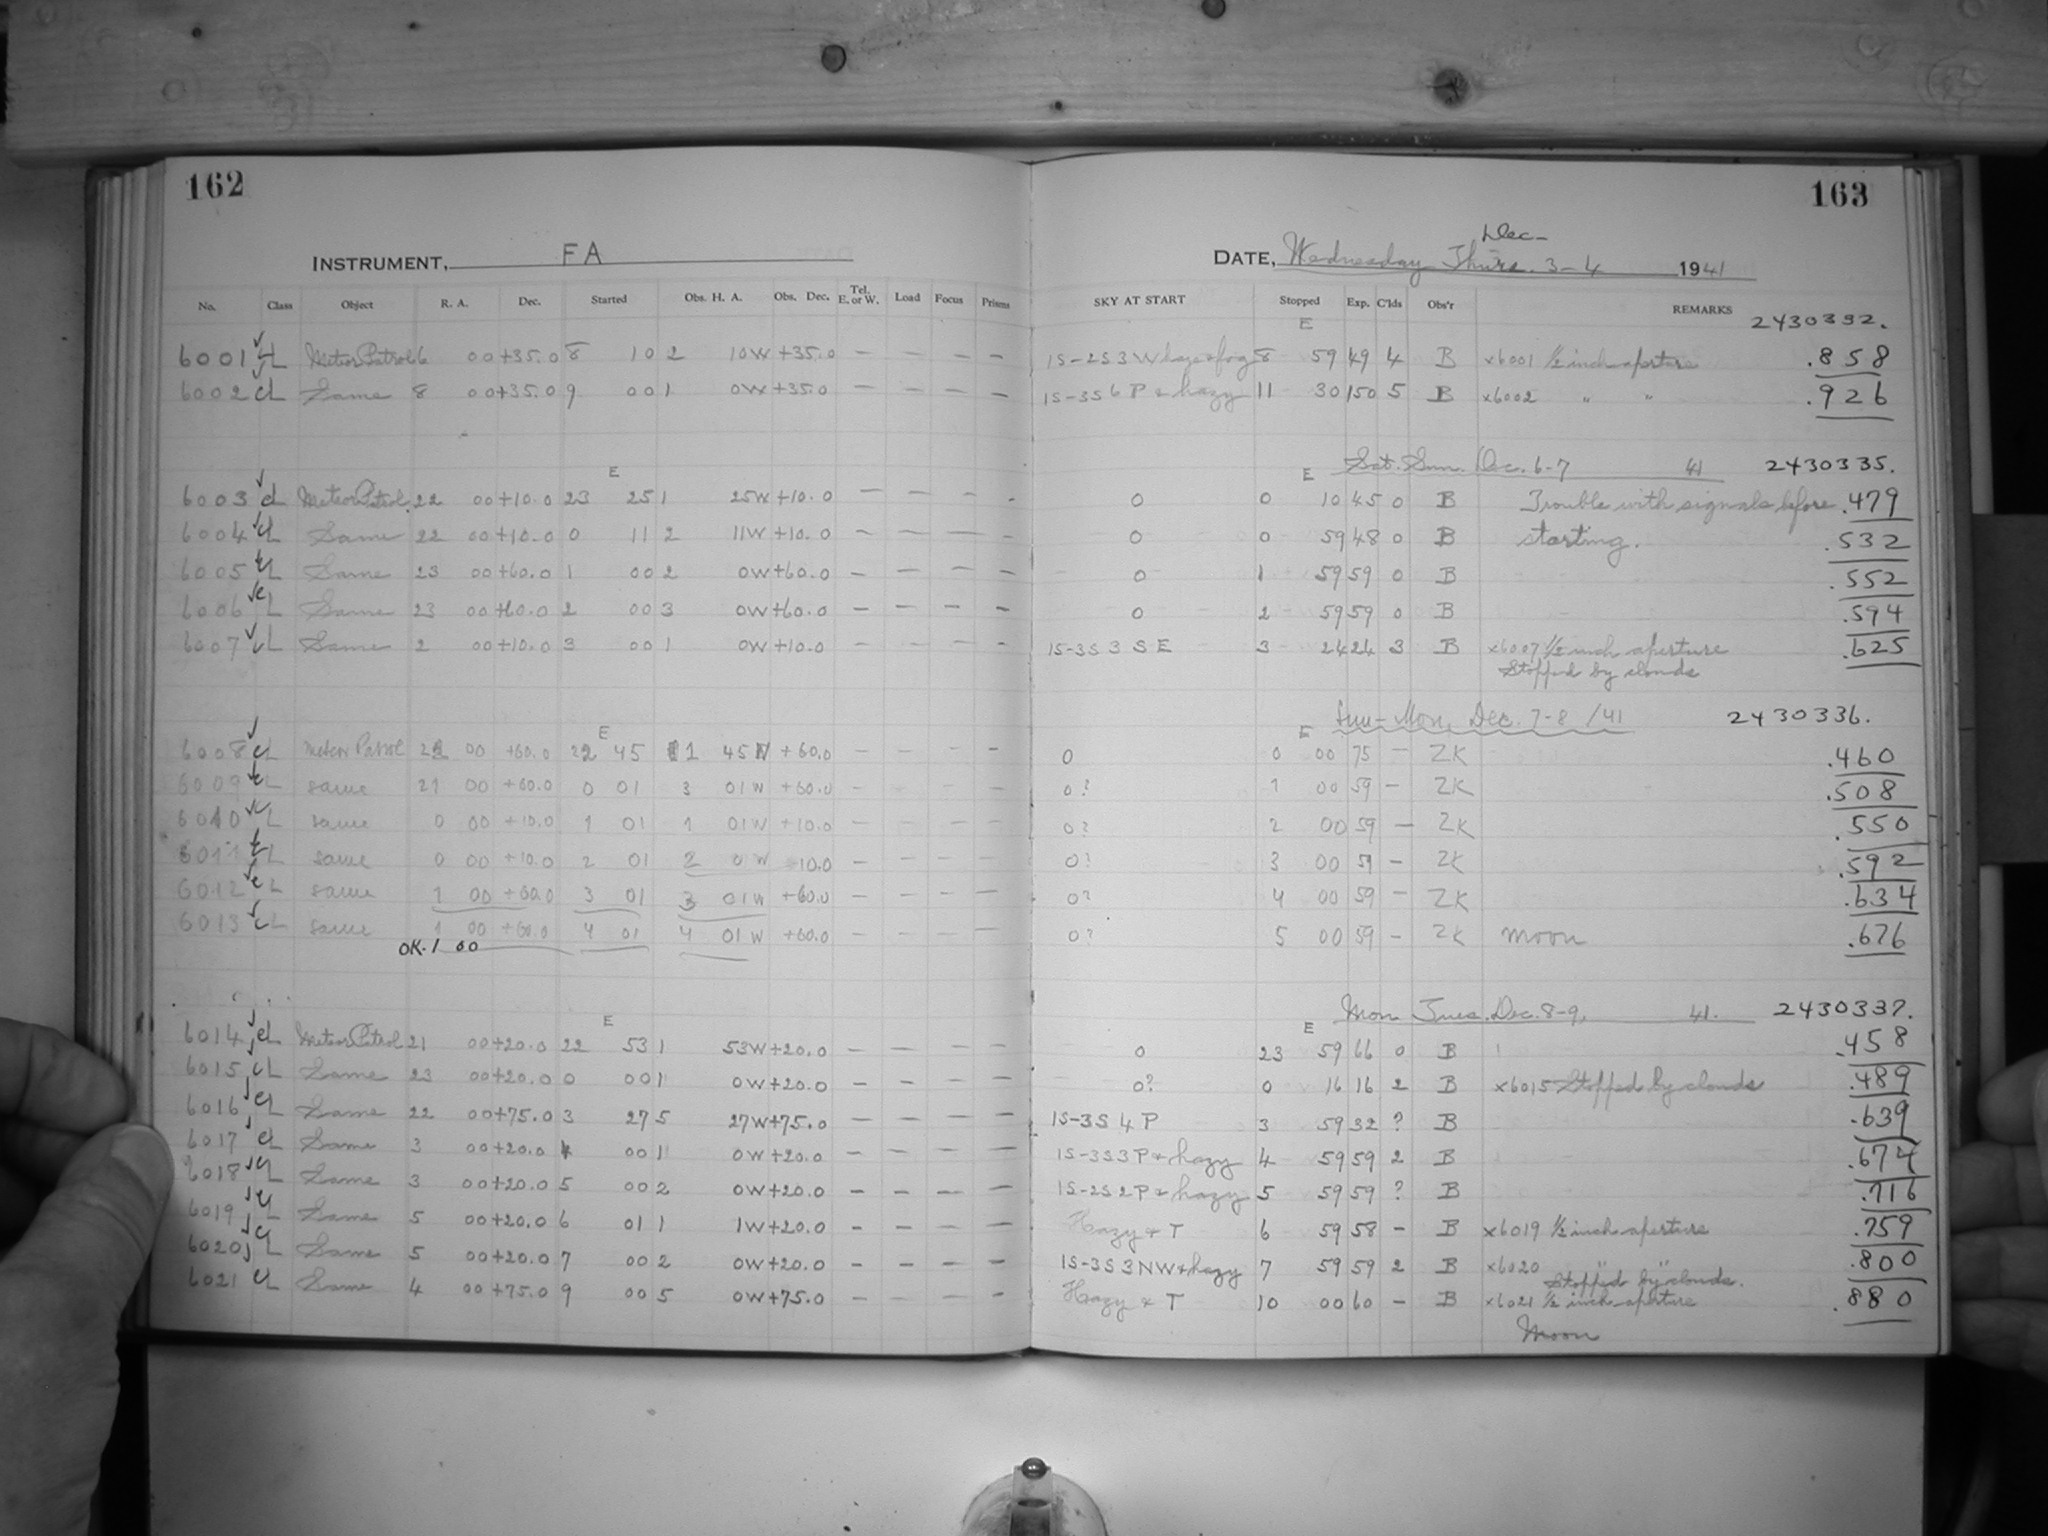 162
163
INSTRUMENT, FA
DATE, Wednesday Thurs. Dec- 3-4 1941
No. Class Object R. A. Dec. Started Obs. H. A. Obs. Dec. Tel. E. or W. Load Focus Prisms SKY AT START Stopped Exp. C'lds Obs'r REMARKS
E 2430332.
6001 cL Meteor Patrol 6 00 +35.0 8 10 2 10W +35.0 — — — — 1S-2S 3 W haze & fog 8 59 49 4 B x6001 ½ inch aperture .858
6002 cL Same 8 00 +35.0 9 00 1 0W +35.0 — — — — 1S-3S 6 P & hazy 11 30 150 5 B x6002 " " .926
E E Sat. Sun. Dec. 6-7 41 2430335.
6003 cL Meteor Patrol 22 00 +10.0 23 25 1 25W +10.0 — — — - 0 0 10 45 0 B Trouble with signals before .479
6004 cL Same 22 00 +10.0 0 11 2 11W +10.0 — — — — 0 0 59 48 0 B starting. .532
6005 cL Same 23 00 +60.0 1 00 2 0W +60.0 — — — — 0 1 59 59 0 B .552
6006 cL Same 23 00 +60.0 2 00 3 0W +60.0 — — — — 0 2 59 59 0 B .594
6007 cL Same 2 00 +10.0 3 00 1 0W +10.0 — — — — 1S-3S 3 S E 3 24 24 3 B x6007 ½ inch aperture .625
Stopped by clouds
E E Sun-Mon, Dec. 7-8 /41 2430336.
6008 cL Meteor Patrol 22 00 +60.0 22 45 1 45W +60.0 — - - - 0 0 00 75 — ZK .460
6009 cL same 21 00 +60.0 0 01 3 01W +60.0 - - - - 0? 1 00 59 — ZK .508
6010 cL same 0 00 +10.0 1 01 1 01W +10.0 — - - - 0? 2 00 59 — ZK .550
6011 cL same 0 00 +10.0 2 01 2 01W +10.0 - - - - 0? 3 00 59 — ZK .592
6012 cL same 1 00 +60.0 3 01 3 01W +60.0 — - - — 0? 4 00 59 — ZK .634
6013 cL same 1 00 +60.0 4 01 4 01W +60.0 — - - — 0? 5 00 59 - ZK moon .676
OK. 1 00
E E Mon Tues. Dec. 8-9, 41. 2430337.
6014 cL Meteor Patrol 21 00 +20.0 22 53 1 53W +20.0 — — — — 0 23 59 66 0 B .458
6015 cL Same 23 00 +20.0 0 00 1 0W +20.0 — — — — 0? 0 16 16 2 B x6015 Stopped by clouds .489
6016 cL Same 22 00 +75.0 3 27 5 27W +75.0 — — — — 1S-3S 4 P 3 59 32 ? B .639
6017 cL Same 3 00 +20.0 4 00 1 0W +20.0 — — — — 1S-3S 3 P & hazy 4 59 59 2 B .674
6018 cL Same 3 00 +20.0 5 00 2 0W +20.0 — — — — 1S-2S 2 P & hazy 5 59 59 ? B .716
6019 cL Same 5 00 +20.0 6 01 1 1W +20.0 — — — — Hazy & T 6 59 58 - B x6019 ½ inch aperture .759
6020 cL Same 5 00 +20.0 7 00 2 0W +20.0 — — — — 1S-3S 3 NW & hazy 7 59 59 2 B x6020 " " .800
Stopped by clouds.
6021 cL Same 4 00 +75.0 9 00 5 0W +75.0 — — — — Hazy & T 10 00 60 - B x6021 ½ inch aperture .880
Moon